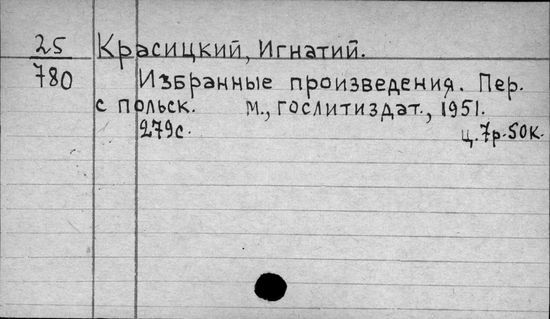 25 Красицкий, Игнатий.
780 Избранные произведения. Пер.
с польск. М., гослитиздат., 1951.
279с. ц. 7р. 50к.